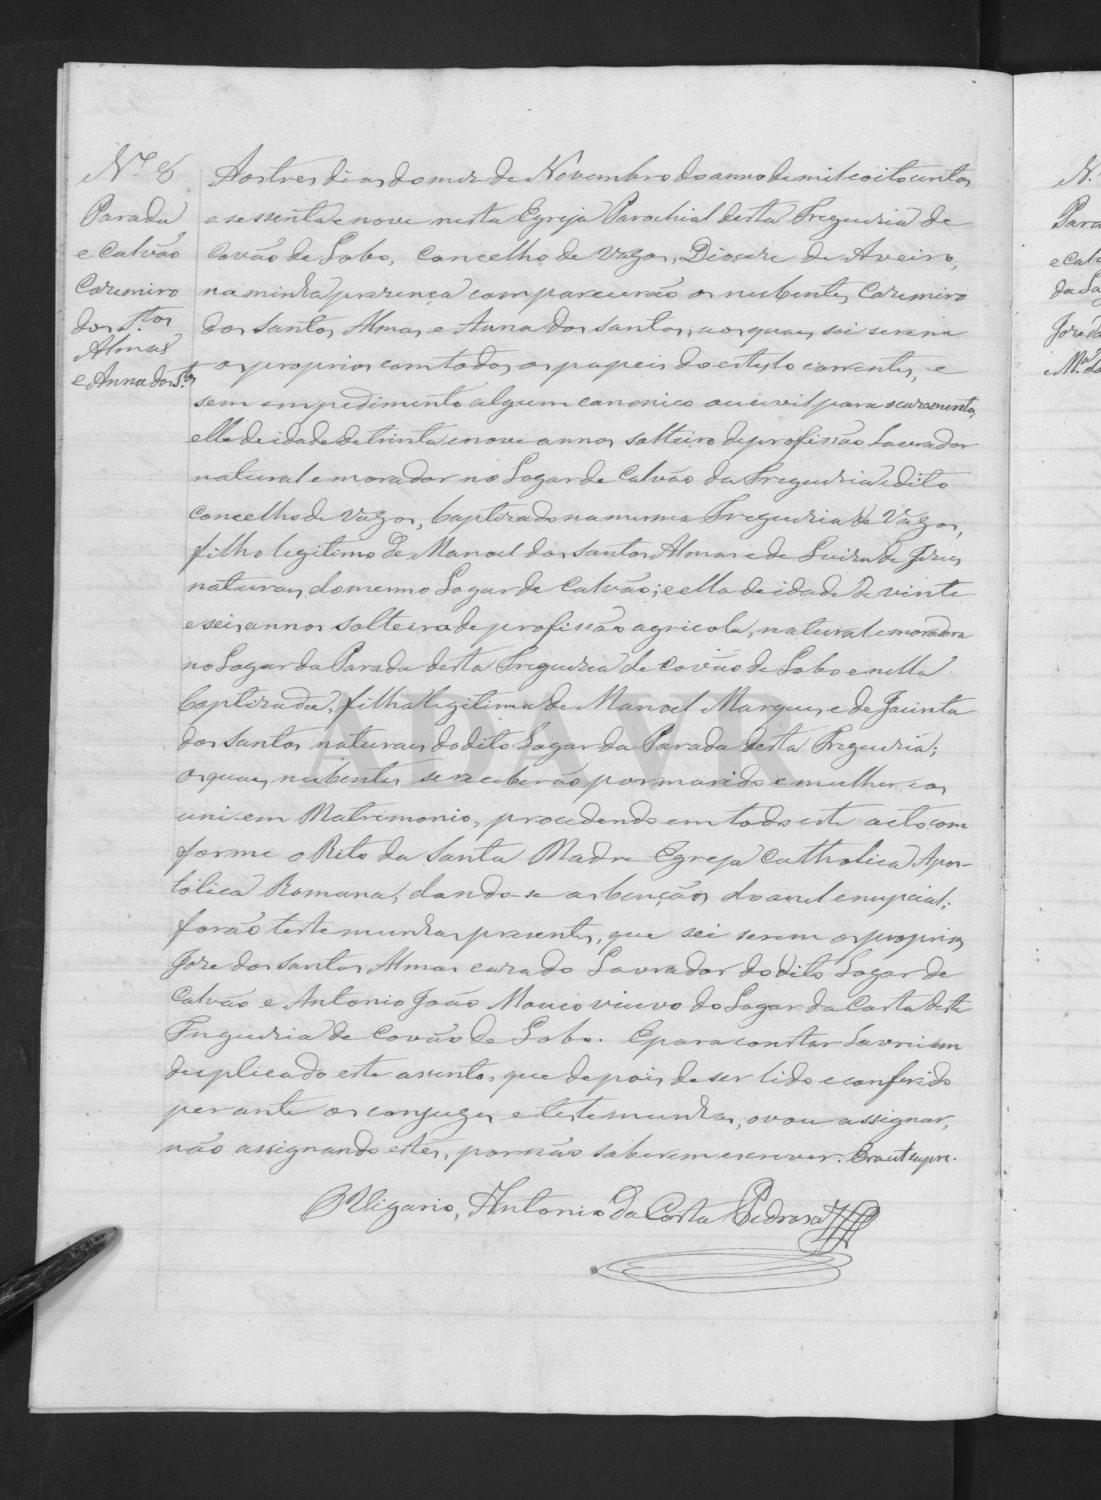 N.º 8
Parada
e Calvão
Cazemiro
dos S.tos
Almas
e Anna dos S.tos
Aos tres dias do mez de Novembro do anno de mil e oitocentos
e sessenta e nove nesta Egreja Parochial desta Freguezia de
Covão de Lobo, Concelho de Vagos, Diocese de Aveiro,
na minha prezença compareceram os nubentes, Cazemiro
dos Santos Almas, e Anna dos Santos, aos quaes sei serem
os proprios com todos os papeis do estylo correntes, e
sem empedimento algum canonico ou civil para o cazamento,
elle de idade de trinta e nove annos solteiro de profissão Lavrador
natural e morador no Logar de Calvão da Freguezia e dito
Concelho de Vagos, baptizado na mesma Freguezia de Vagos,
filho legitimo de Manoel dos Santos Almas e de Luiza de Jesus
naturaes do mesmo Logar de Calvão; e ella de idade de vinte
e seis annos solteira de profissão agricola, natural e moradora
no Logar da Parada desta Freguezia de Covão de Lobo e nella
baptizada, filha legitima de Manoel Marques, e de Jacinta
dos Santos naturaes do dito Logar da Parada desta Freguezia;
os quaes nubentes se receberão por marido e mulher, e os
uni em Matrimonio, procedendo em todo este acto com
forme o Rito da Santa Madre Egreja Catholica Apos-
tólica Romana, dando-se as bençãos do anel e nupcial;
forão testemunhas prezentes, que sei serem os proprios
Joze dos Santos Almas cazado Lavrador do dito Logar de
Calvão e Antonio João Mouco viuvo do Logar da Costa desta
Freguezia de Covão de Lobo. E para constar lavrei em
duplicado este assento, que depois de ser lido e conferido
perante os conjuges e testemunhas, o vou assignar,
não assignando estes, por não saberem escrever. Era ut supra.
O Vigario, Antonio da Costa Pedroza
ADAVR
N.º
Para
e Calv
Joze d